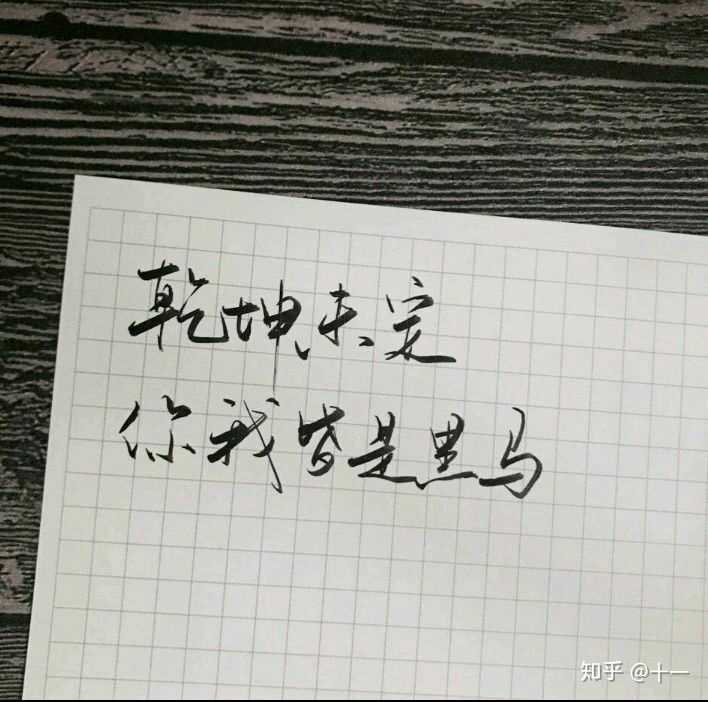 乾坤未定
你我皆是黑马
知乎 @十一